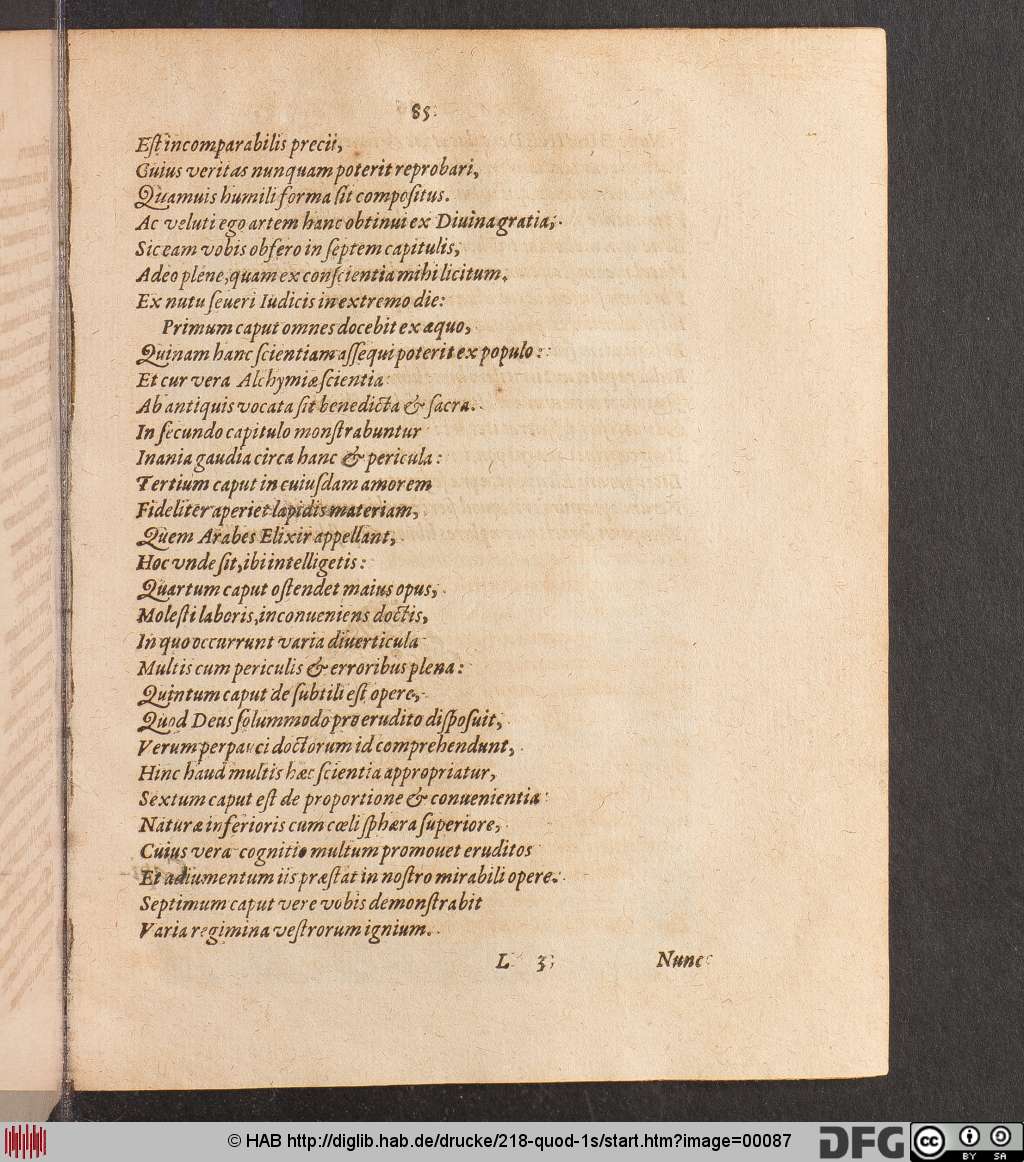 85
Eſt incomparabilis precii,
Cuius veritas nunquam poterit reprobari,
Quamuis humili forma ſit compoſitus.
Ac veluti ego artem hanc obtinui ex Diuina gratia,
Sic eam vobis obfero in ſeptem capitulis,
Adeo plene, quam ex conſcientia mihi licitum.
Ex nutu ſeueri Iudicis in extremo die:
Primum caput omnes docebit ex æquo,
Quinam hanc ſcientiam aſſequi poterit ex populo:
Et cur vera Alchymiæ ſcientia
Ab antiquis vocata ſit benedicta & ſacra.
In ſecundo capitulo monſtrabuntur
Inania gaudia circa hanc & pericula:
Tertium caput in cuiuſdam amorem
Fideliter aperiet lapidis materiam,
Quem Arabes Elixir appellant,
Hoc vnde ſit, ibi intelligetis:
Quartum caput oſtendet maius opus,
Moleſti laboris, inconueniens doctis,
In quo occurrunt varia diuerticula
Multis cum periculis & erroribus plena:
Quintum caput de ſubtili eſt opere,
Quod Deus ſolummodo pro erudito diſpoſuit,
Verum perpauci doctorum id comprehendunt,
Hinc haud multis hæc ſcientia appropriatur,
Sextum caput eſt de proportione & conuenientia
Naturæ inferioris cum cœli ſphæra ſuperiore,
Cuius vera cognitio multum promouet eruditos
Et adiumentum iis præſtat in noſtro mirabili opere.
Septimum caput vere vobis demonſtrabit
Varia regimina veſtrorum ignium.
L 3 Nunc
© HAB http://diglib.hab.de/drucke/218-quod-1s/start.htm?image=00087
DFG cc BY SA